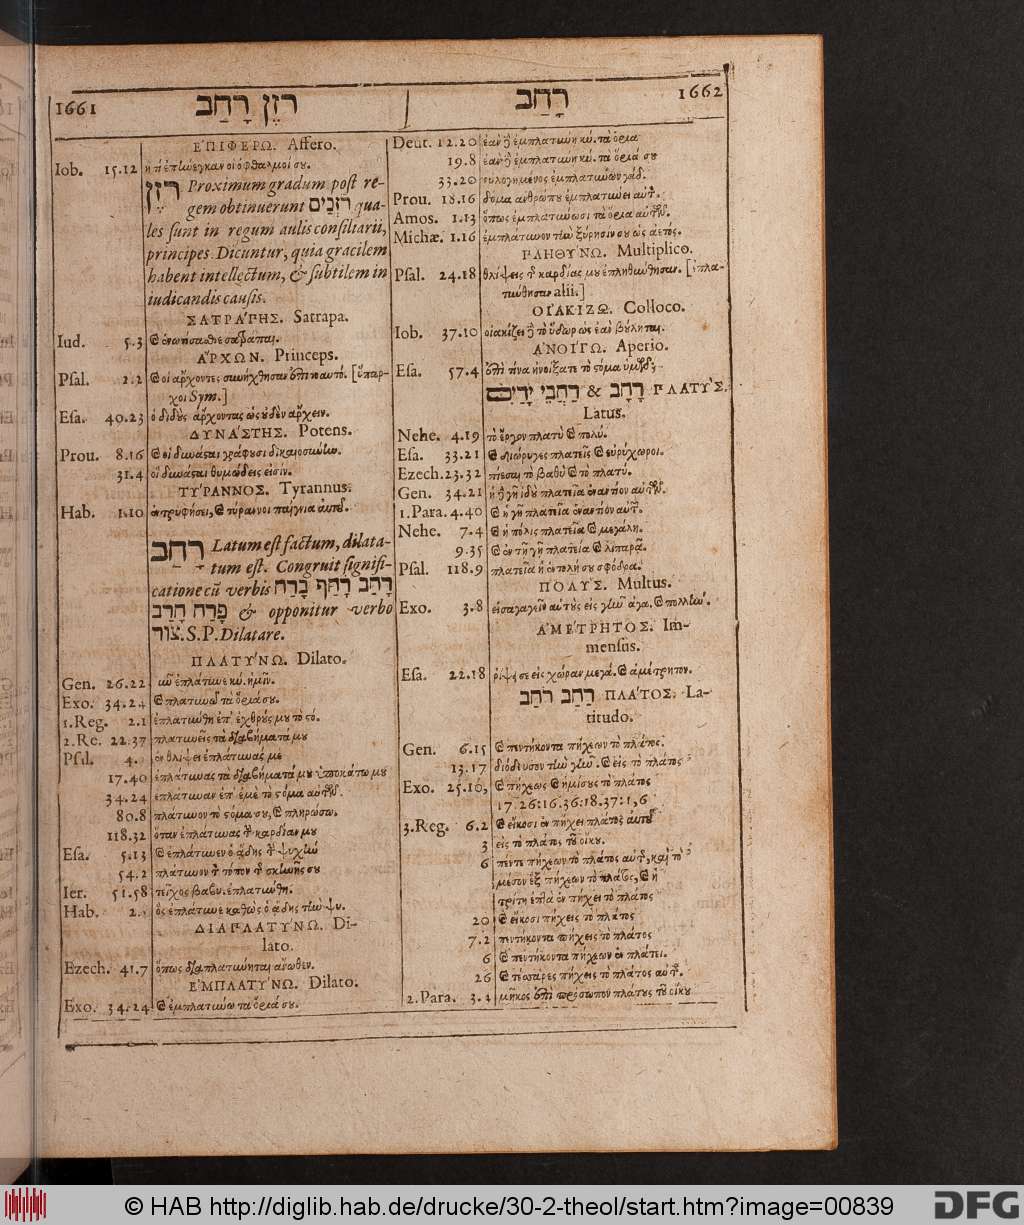 1661 רזן רָחַב
ἘΠΙΦΈΡΩ. Affero.
Iob. 15.12 ἢ τί ἐπήνεγκαν οἱ ὀφθαλμοί σου.
רזן Proximum gradum post re-
gem obtinuerunt רֹזְנִים qua-
les sunt in regum aulis consiliarii,
principes. Dicuntur, quia gracilem
habent intellectum, & subtilem in
iudicandis causis.
ΣΑΤΡΆΠΗΣ. Satrapa.
Iud. 5.3
ἌΡΧΩΝ. Princeps.
Psal. 2.2 καὶ οἱ ἄρχοντες συνήχθησαν ἐπὶ τὸ αυτό. [ὕπαρ-
χοι Sym.]
Esa. 40.23 ὁ διδοὺς ἄρχοντας ὡς οὐδὲν ἄρχειν.
ΔΥΝΆΣΤΗΣ. Potens.
Prou. 8.16 καὶ οἱ δυνάσται γράφουσι δικαιοσύνην.
31.4 οἱ δυνάσται θυμώδεις εἰσίν.
ΤΎΡΑΝΝΟΣ. Tyrannus.
Hab. 1.10 ἐντρυφήσει, καὶ τύραννοι παίγνια αὐτοῦ.
רָחַב Latum est factum, dilata-
tum est. Congruit signifi-
catione cū verbis
& opponitur verbo
צור. S.P. Dilatare.
ΠΛΑΤΎΝΩ. Dilato.
Gen. 26.22 νῦν ἐπλάτυνε κύ. ἡμῖν.
Exo. 34.24 καὶ πλατυνῶ τὰ ὅριά σου.
1.Reg. 2.1 ἐπλατύνθη ἐπ' ἐχθρούς μου τὸ στό.
2.Re. 22.37 πλατυνεῖς τὰ διαβήματά μου
Psal. 4. ἐν θλίψει ἐπλάτυνας με
17.40 ἐπλάτυνας τὰ διαβήματά μου ὑποκάτω μου
34.24 ἐπλάτυναν ἐπ' ἐμὲ τὸ στόμα αὐτῶν.
80.8 πλάτυνον τὸ στόμα σου, καὶ πληρώσω.
118.32 ὅταν ἐπλάτυνας τὴν καρδίαν μου
Esa. 5.13 καὶ ἐπλάτυνεν ὁ ᾅδης τὴν ψυχὴν
54.2 πλάτυνον τὸν τόπον τῆς σκηνῆς σου
Ier. 51.58 τεῖχος βαβυ. ἐπλατύνθη.
Hab. 2. ὃς ἐπλάτυνε καθὼς ὁ ᾅδης τὴν ψυ.
ΔΙΑΠΛΑΤΎΝΩ. Di-
lato.
Ezech. 41.7 ὅπως διαπλατύνηται ἄνωθεν.
ἘΜΠΛΑΤΎΝΩ. Dilato.
Exo. 34.24 καὶ ἐμπλατύνω τὰ ὅριά σου.
רָחַב 1662
Deut. 12.20 ἐὰν δὲ ἐμπλατύνῃ κύ. τὰ ὅρια
19.8 ἐὰν δὲ ἐμπλατύνῃ κύ. τὰ ὅριά σου
33.20 εὐλογημένος ἐμπλατύνων γάδ.
Prou. 18.16 δόμα ἀνθρώπου ἐμπλατύνει αὐτόν.
Amos. 1.13 ὅπως ἐμπλατύνωσι τὰ ὅρια αὐτῶν.
Michæ. 1.16 ἐμπλάτυνον τὴν ξύρησίν σου ὡς ἀετός.
ΠΛΗΘΎΝΩ. Multiplico.
Psal. 24.18 θλίψεις τῆς καρδίας μου ἐπληθύνθησαν. [ἐπλα-
τύνθησαν alii.]
ΟἸΑΚΊΖΩ. Colloco.
Iob. 37.10 οἰακίζει δὲ τὸ ὕδωρ ὡς ἐὰν βούληται.
ἈΝΟΊΓΩ. Aperio.
Esa. 57.4 ἐπὶ τίνα ἠνοίξατε τὸ στόμα ὑμῶν;
רָחָב & רַחֲבֵי יָדַיִם ΠΛΑΤΎΣ.
Latus.
Nehe. 4.19 τὸ ἔργον πλατὺ καὶ πολύ.
Esa. 33.21 καὶ διώρυγες πλατεῖς καὶ εὐρύχωροι.
Ezech. 23.32 πίεσαι τὸ βαθὺ καὶ τὸ πλατύ.
Gen. 34.21 ἡ δὲ γῆ ἰδοὺ πλατεῖα ἐναντίον αὐτῶν.
1.Para. 4.40 καὶ ἡ γῆ πλατεῖα ἐναντίον αὐτῶν.
Nehe. 7.4 καὶ ἡ πόλις πλατεῖα καὶ μεγάλη.
9.35 καὶ ἐν τῇ γῇ πλατείᾳ καὶ λιπαρᾷ.
Psal. 118.9 πλατεῖα ἡ ἐντολή σου σφόδρα.
ΠΟΛΎΣ. Multus.
Exo. 3.8 εἰσαγαγεῖν αὐτοὺς εἰς γῆν ἀγα. καὶ πολλήν.
ἈΜΈΤΡΗΤΟΣ. Im-
mensus.
Esa. 22.18 ῥίψει σε εἰς χώραν μεγά. καὶ ἀμέτρητον.
רַחַב רֹחַב ΠΛΆΤΟΣ. La-
titudo.
Gen. 6.15 καὶ πεντήκοντα πήχεων τὸ πλάτος.
13.17 διόδευσον τὴν γῆν. καὶ εἰς τὸ πλάτος
Exo. 25.10, καὶ πήχεως καὶ ἡμίσους τὸ πλάτος
17.26:16.36:18.37:1,6
3.Reg. 6.2 καὶ εἴκοσι ἐν πήχει πλάτος αὐτοῦ
3 εἰς τὸ πλάτος τοῦ οἴκου.
6 πέντε πήχεων τὸ πλάτος αὐτῆς, καὶ τὸ
μέσον ἓξ πήχεων τὸ πλάτος, καὶ ἡ
τρίτη ἑπτὰ ἐν πήχει τὸ πλάτος
20 καὶ εἴκοσι πήχεις τὸ πλάτος
7.2 πεντήκοντα πήχεις τὸ πλάτος
6 καὶ πεντήκοντα πήχεων ἐν πλάτει.
26 καὶ τέσσαρες πήχεις τὸ πλάτος αὐτῆς.
2.Para. 3.4 μῆκος ἐπὶ πρόσωπον πλάτους τοῦ οἴκου
© HAB http://diglib.hab.de/drucke/30-2-theol/start.htm?image=00839 DFG